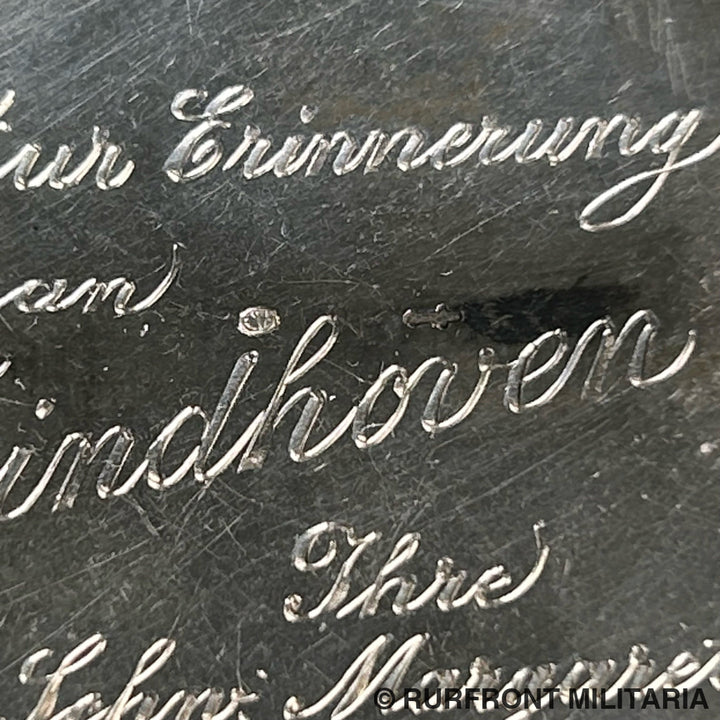 Zur Erinnerung
an
Eindhoven
Ihre
Schw. Margaret
© RURFRONT MILITARIA